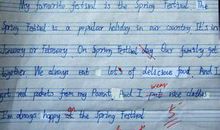 My favourite festival is the Spring Festival. The
Spring Festival is a popular holiday in our country. It's in
January or February. On Spring Festival day Our family get
together. We always eat lots of delicious food. And I
get red packets from my Parent. And I wear nice clothes.
I'm always happy at the Spring Festival